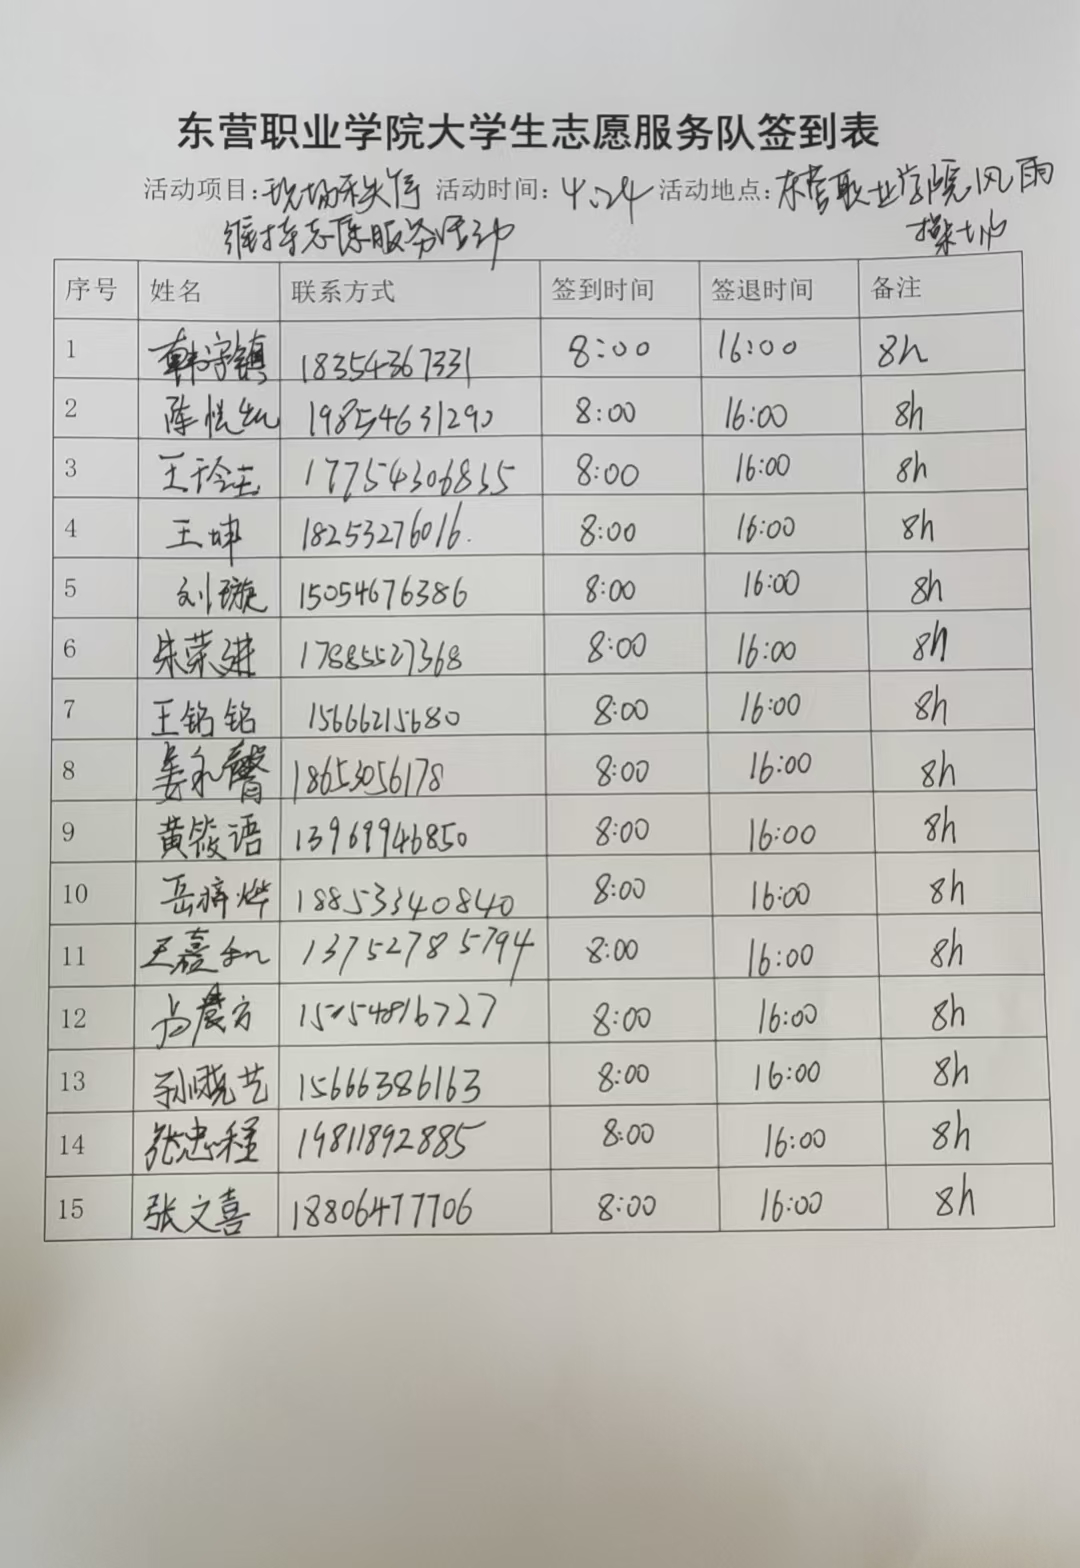 东营职业学院大学生志愿服务队签到表
活动项目:现场秩 活动时间:4.24 活动地点:东营职业学院风雨
维持志愿服务活动 操场
序号 姓名 联系方式 签到时间 签退时间 备注
1 韩宇镇 18354367331 8:00 16:00 8h
2 陈 19854631290 8:00 16:00 8h
3 王 17754306835 8:00 16:00 8h
4 王坤 18253276016 8:00 16:00 8h
5 刘璇 15054676386 8:00 16:00 8h
6 朱荣进 17885527368 8:00 16:00 8h
7 王铭铭 15666215680 8:00 16:00 8h
8 姜永馨 18653056178 8:00 16:00 8h
9 黄筱语 13969946850 8:00 16:00 8h
10 岳梓烨 18853340840 8:00 16:00 8h
11 王嘉 13752785794 8:00 16:00 8h
12 8:00 16:00 8h
13 孙晓艺 15666386163 8:00 16:00 8h
14 张忠程 19811892885 8:00 16:00 8h
15 张文喜 18806477706 8:00 16:00 8h